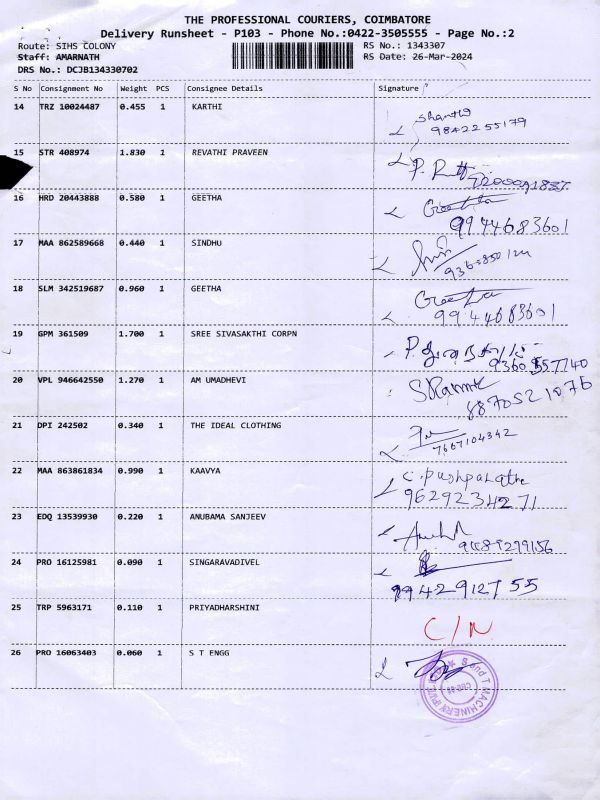 THE PROFESSIONAL COURIERS, COIMBATORE
Delivery Runsheet - P103 - Phone No.:0422-3505555 - Page No.:2
Route: SIHS COLONY RS No.: 1343307
Staff: AMARNATH RS Date: 26-Mar-2024
DRS No.: DCJB134330702
S No Consignment No Weight PCS Consignee Details Signature
14 TRZ 10024487 0.455 1 KARTHI
Shanthi
9842255179
15 STR 408974 1.830 1 REVATHI PRAVEEN
16 HRD 20443888 0.580 1 GEETHA
Geetha
9944683601
17 MAA 862589668 0.440 1 SINDHU
18 SLM 342519687 0.960 1 GEETHA
Geetha
9944683601
19 GPM 361509 1.700 1 SREE SIVASAKTHI CORPN
9360557740
20 VPL 946642550 1.270 1 AM UMADHEVI
8870521076
21 DPI 242502 0.340 1 THE IDEAL CLOTHING
7667104342
22 MAA 863861834 0.990 1 KAAVYA
C. Pushpalatha
9629234271
23 EDQ 13539930 0.220 1 ANUBAMA SANJEEV
24 PRO 16125981 0.090 1 SINGARAVADIVEL
9942912755
25 TRP 5963171 0.110 1 PRIYADHARSHINI
C/N
26 PRO 16063403 0.060 1 S T ENGG